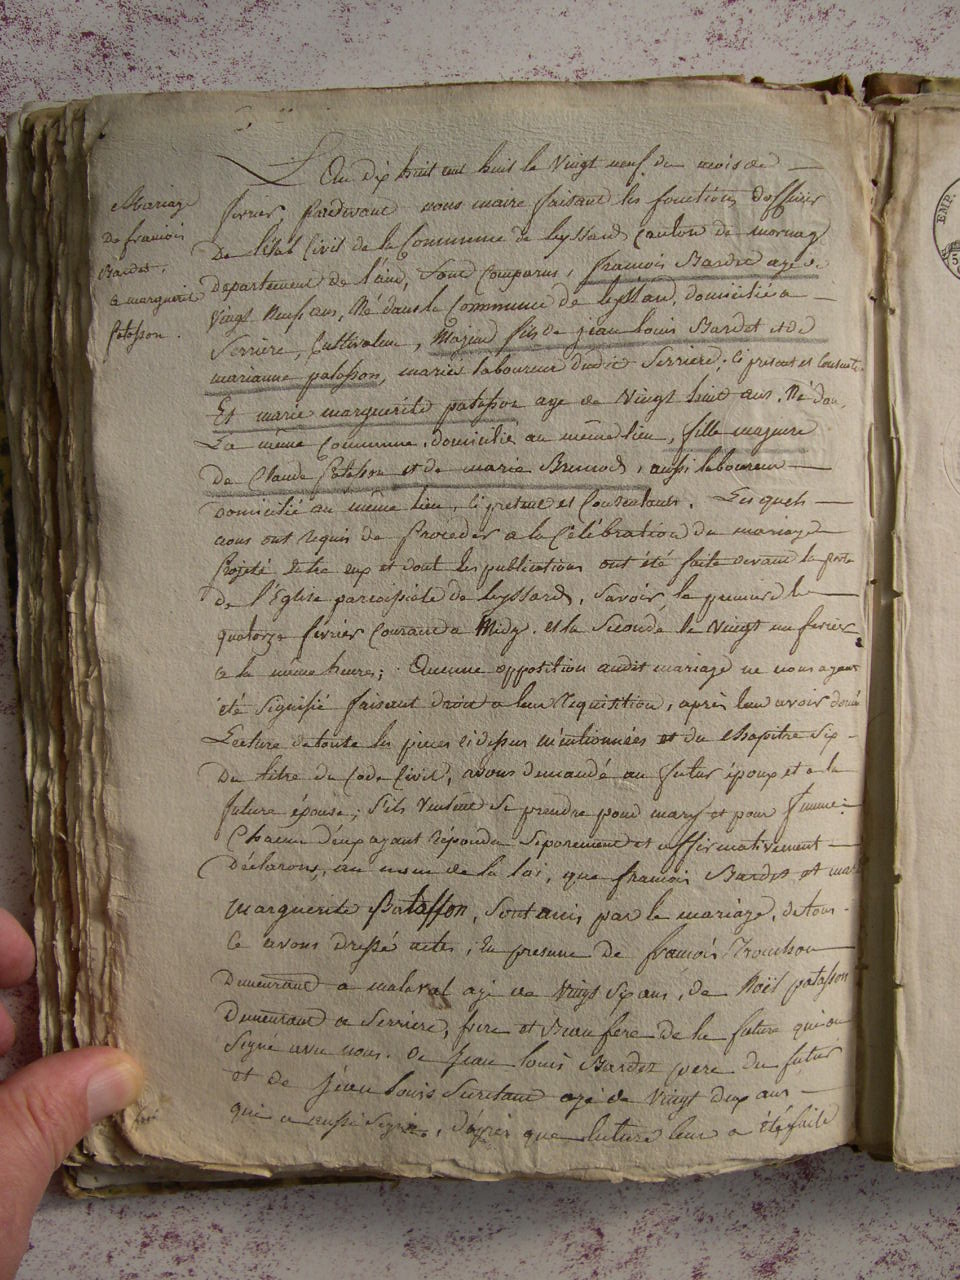 Mariage
De francois
Bardet,
a marguerite
patosson.
L'An dix huit cent huit le Vingt neuf du mois de
fevrier, Pardevant nous maire faisant les fonctions d'officier
De l'état Civil de la Commune de leyssard Canton de
departement de l'ain, Sont Comparus, francois Bardet age de
Vingt Neuf ans, Né dans la Commune de leyssard, domicilié a
Serriere, Cultivateur, Majeur fils de jean louis Bardet et de
marianne patosson, mariés laboureur dudit Serriere; Ci present et Consent
Et marie marguerite patasson age de Vingt huit ans. Né dan
La même Commune, domicilié au même lieu, fille majeure
De Claude Patosson et de marie Brunod, aussi laboureur
Domicilié au même lieu, Ci present et Consentant. Lesquels
nous ont requis de Proceder a la Célébration du mariage
Projeté entre eux et dont les publications ont été faite devant la porte
de l'Eglise paroissiale de leyssard, Savoir, la premiere le
quatorze fevrier Courant a Midy. et la Seconde le Vingt un fevrier
a la même heures; Aucune opposition audit mariage ne nous ayant
été Signifié faisant droit a leur Requisition, après leur avoir donné
Lecture de toute les pieces cidessus mentionnées et du Chapitre Six
Du titre du Code Civil, avons demandé au futur époux et a la
future épouse; S'ils Veulent Se prendre pour mary et pour femme:
Chacun d'eux ayant répondu Séparement et affirmativement
Déclarons, au nom de la loi, que francois Bardet et mari
Marguerite Patasson, Sont unis par le mariage, de tous
Ce avons dressé actes, En presence de francois
Demeurant a malaval agé de Vingt Six ans, de Noël patasson
Demeurant a Serriere, frere et Beau frere de la future qui on
Signé avec nous. De jean louis Bardet pere du futur
et de jean louis agé de Vingt deux ans
qui a aussi Signé, d'après que lecture leur a été faite